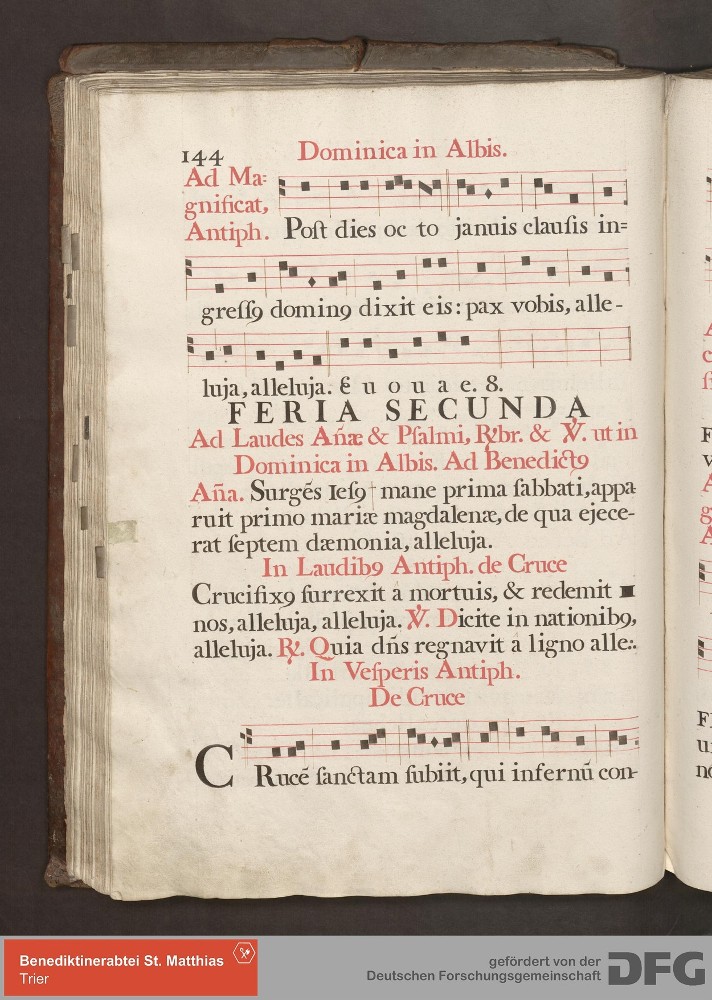 144 Dominica in Albis.
Ad Ma=
gnificat,
Antiph. Poſt dies oc to januis clauſis in=
greſſꝯ dominꝯ dixit eis: pax vobis, alle-
luja, alleluja. E u o u a e. 8.
FERIA SECUNDA
Ad Laudes Añæ & Pſalmi, R℣br. & ℣. ut in
Dominica in Albis. Ad Benedictꝯ
Aña. Surgēs Ieſꝯ † mane prima ſabbati, appa
ruit primo mariæ magdalenæ, de qua ejece-
rat ſeptem dæmonia, alleluja.
In Laudibꝯ Antiph. de Cruce
Crucifixꝯ ſurrexit a mortuis, & redemit
nos, alleluja, alleluja. ℣. Dicite in nationibꝯ,
alleluja. ℟. Quia dñs regnavit a ligno alle:.
In Veſperis Antiph.
De Cruce
CRucē ſanctam ſubiit, qui infernū con-
Benediktinerabtei St. Matthias
Trier
gefördert von der
Deutschen Forschungsgemeinschaft DFG